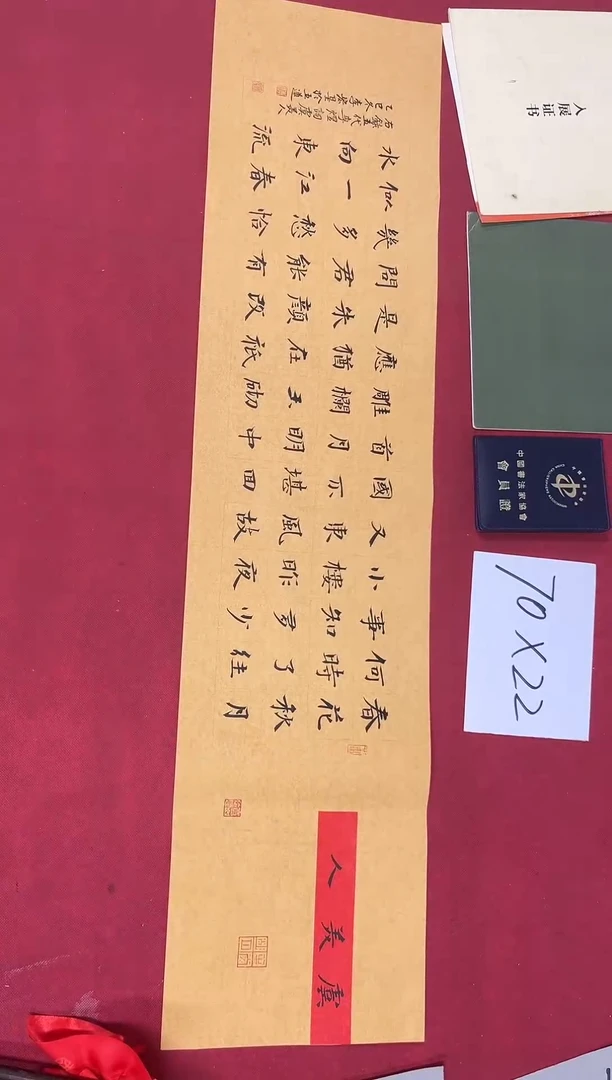 虞美人
春花秋月
何時了往
事知多少
小樓昨夜
又東風故
國不堪回
首月明中
雕欄玉砌
應猶在祇
是朱顏改
問君能有
幾多愁恰
似一江春
水向東流
入展证书
中國書法家協會
會員證
70X22